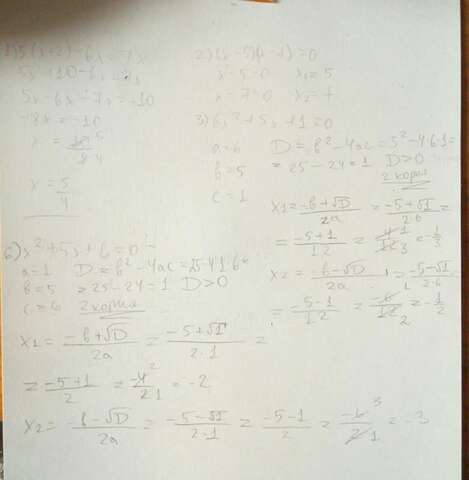 1) 5(x+2)-6x=7x
5x+10-6x=7x
5x-6x-7x=-10
-8x=-10
x = 10 5 / 8 4
x = 5/4
2) (x-5)(x-7)=0
x-5=0 x1=5
x-7=0 x2=7
3) 6x²+5x+1=0
a=6 D=b²-4ac=5²-4·6·1=
b=5 =25-24=1 D>0
c=1 2 корня
x1= (-b+√D)/2a = (-5+√1)/2·6 =
= (-5+1)/12 = -4 1/12 3 = -1/3
x2= (-b-√D)/2a = (-5-√1)/2·6
= (-5-1)/12 = -6 1/12 2 = -1/2
6) x²+5x+6=0
a=1 D=b²-4ac=25-4·1·6=
b=5 =25-24=1 D>0
c=6 2 корня
x1= (-b+√D)/2a = (-5+√1)/2·1 =
= (-5+1)/2 = -4 2/2 1 = -2
x2= (-b-√D)/2a = (-5-√1)/2·1 = (-5-1)/2 = -6 3/2 1 = -3